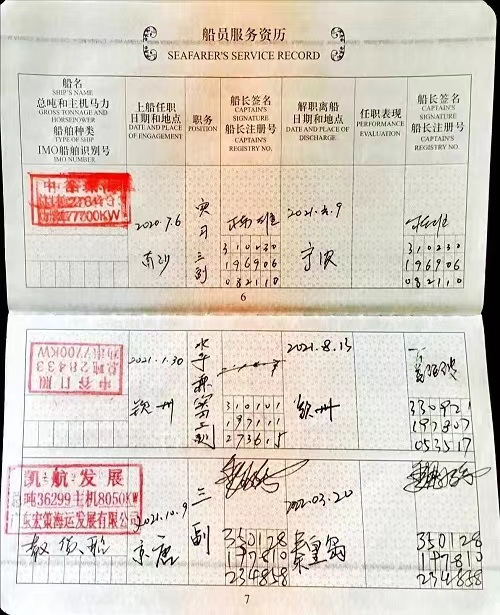 船员服务资历
SEAFARER'S SERVICE RECORD
船名
SHIP'S NAME
总吨和主机马力
GROSS TONNAGE AND
HORSEPOWER
船舶种类
TYPE OF SHIP
IMO船舶识别号
IMO NUMBER
上船任职
日期和地点
DATE AND PLACE
OF ENGAGEMENT
职务
POSITION
船长签名
CAPTAIN'S
SIGNATURE
船长注册号
CAPTAIN'S
REGISTRY NO.
解职离船
日期和地点
DATE AND PLACE OF
DISCHARGE
任职表现
PERFORMANCE
EVALUATION
船长签名
CAPTAIN'S
SIGNATURE
船长注册号
CAPTAIN'S
REGISTRY NO.
2020.7.6
南沙
实习三副
310230
196906
082110
宁波
310230
196906
082110
6
中谷日照
总吨28433
功率7700KW
2021.1.30
钦州
水手兼实习三副
310101
197111
273615
2021.8.15
钦州
330921
197807
053517
凯航发展
总吨36299主机8050KW
广东宏策海运发展有限公司
散货船
2021.10.9
京唐
三副
350128
197810
234858
2022.03.20
秦皇岛
350128
197810
234858
7